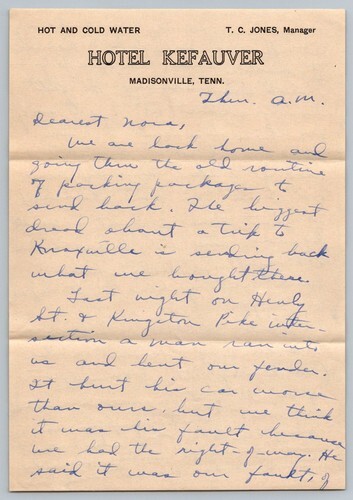 HOT AND COLD WATER T. C. JONES, Manager
HOTEL KEFAUVER
MADISONVILLE, TENN.
Thur. a.m.
Dearest Nora,
We are back home and
going thru the old routine
of packing packages to
send back. The biggest
dread about a trip to
Knoxville is sending back
what we bought there.
Last night on Henly
St. & Kingston Pike inter-
section a man ran into
us and bent our fender.
It hurt his car worse
than ours, but we think
it was his fault because
we had the right-of-way. He
said it was our fault, of